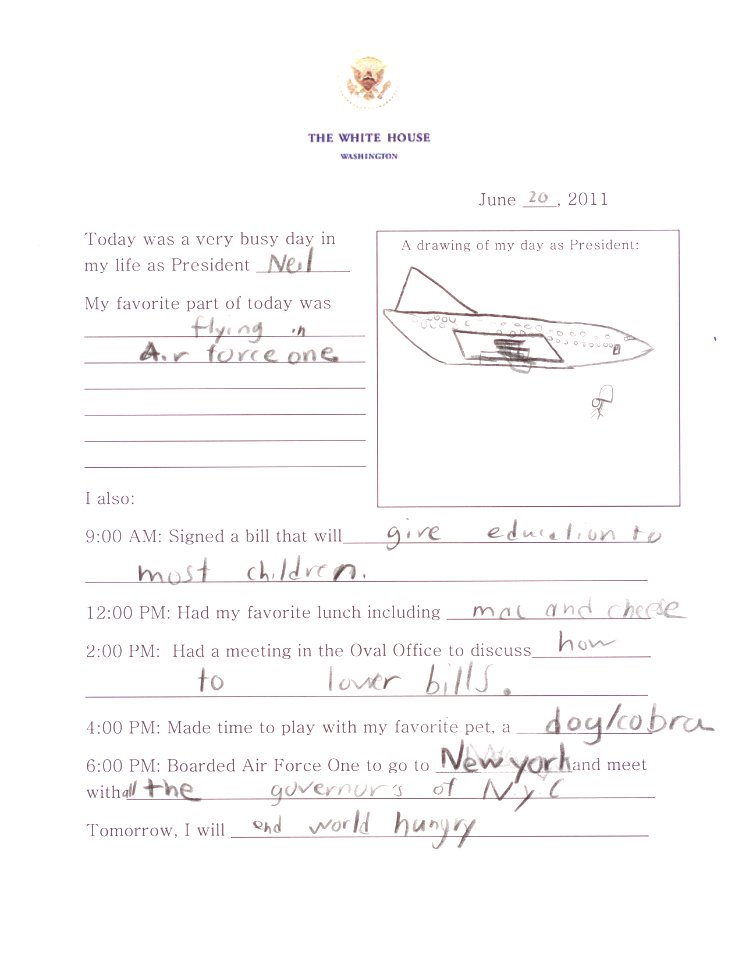 THE WHITE HOUSE
WASHINGTON
June 20, 2011
Today was a very busy day in
my life as President Neil
My favorite part of today was
flying in
Air force one
A drawing of my day as President:
I also:
9:00 AM: Signed a bill that will give education to
most children.
12:00 PM: Had my favorite lunch including mac and cheese
2:00 PM: Had a meeting in the Oval Office to discuss how
to lower bills.
4:00 PM: Made time to play with my favorite pet, a dog/cobra
6:00 PM: Boarded Air Force One to go to New york and meet
with all the governors of NyC
Tomorrow, I will end world hungry